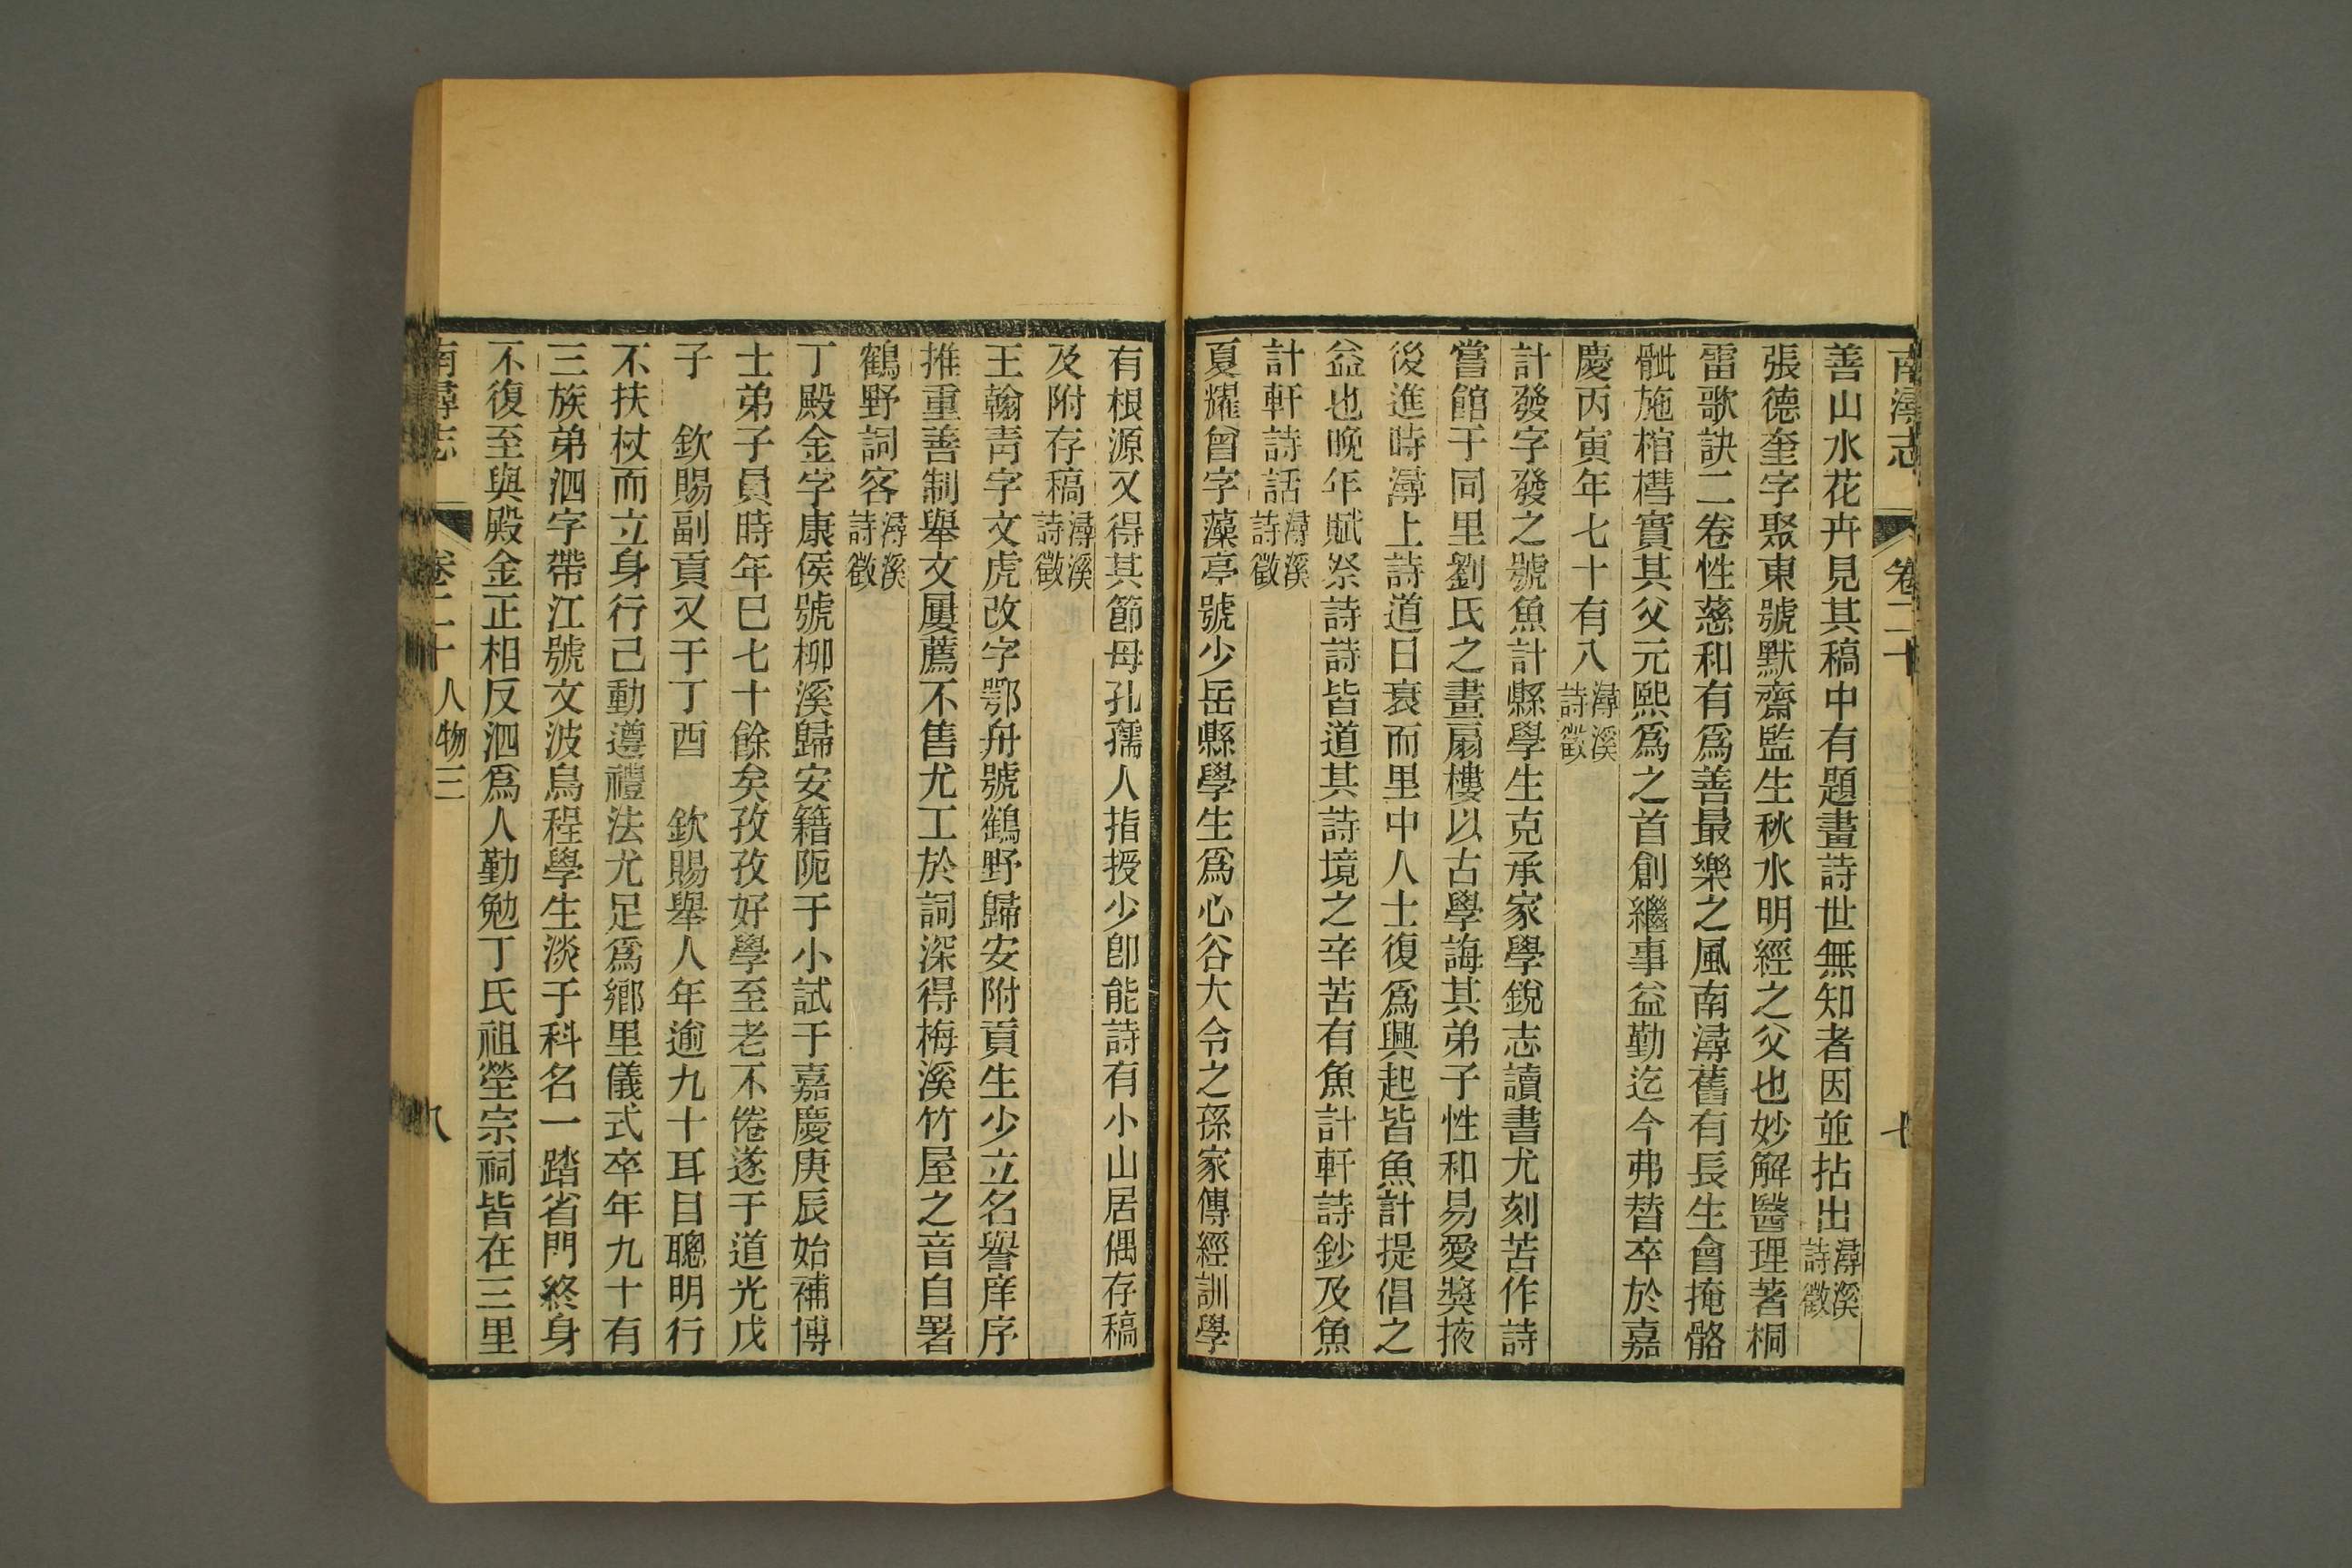 南潯志 卷二十 七
善山水花卉見其稿中有題畫詩世無知者因並拈出潯溪詩徵
張德奎字聚東號默齋監生秋水明經之父也妙解醫理著桐
雷歌訣二卷性慈和有爲善最樂之風南潯舊有長生會掩骼
骴施棺槥實其父元熙爲之首創繼事益勤迄今弗替卒於嘉
慶丙寅年七十有八潯溪詩徵
計發字發之號魚計縣學生克承家學銳志讀書尤刻苦作詩
嘗館于同里劉氏之畫扇樓以古學誨其弟子性和易愛獎掖
後進時潯上詩道日衰而里中人士復爲興起皆魚計提倡之
益也晚年賦祭詩詩皆道其詩境之辛苦有魚計軒詩鈔及魚
計軒詩話潯溪詩徵
夏耀曾字藻亭號少岳縣學生爲心谷大令之孫家傳經訓學
有根源又得其節母孔孺人指授少卽能詩有小山居偶存稿
及附存稿潯溪詩徵
王翰靑字文虎改字鄂舟號鶴野歸安附貢生少立名譽庠序
推重善制舉文屢薦不售尤工於詞深得梅溪竹屋之音自署
鶴野詞客潯溪詩徵
丁殿金字康侯號柳溪歸安籍阨于小試于嘉慶庚辰始補博
士弟子員時年已七十餘矣孜孜好學至老不倦遂于道光戊
子 欽賜副貢又于丁酉 欽賜舉人年逾九十耳目聰明行
不扶杖而立身行己動遵禮法尤足爲鄉里儀式卒年九十有
三族弟泗字帶江號文波烏程學生淡于科名一踏省門終身
不復至與殿金正相反泗爲人勤勉丁氏祖塋宗祠皆在三里
南潯志 卷二十 人物三 八